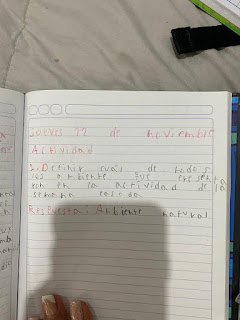 Jueves 22 de noviembre
Actividad
1. Definir cual de todos
los ambiente que presenta
ron en la actividad de la
semana pasada.
Respuesta: Ambiente natural